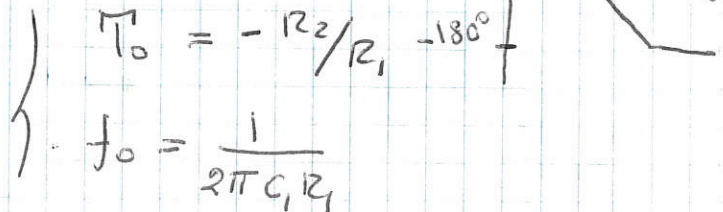 T₀ = - R₂/R₁ -180°
f₀ = 1/2π C₁ R₁